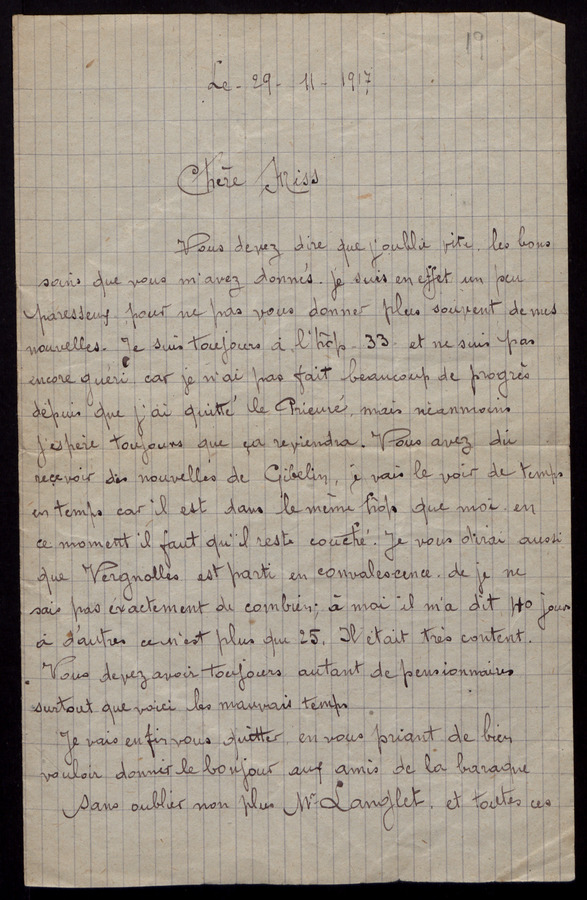 19
Le - 29 - 11 - 1917
Chère Miss
Vous devez dire que j'oublie vite les bons
soins que vous m'avez donnés. Je suis en effet un peu
paresseux pour ne pas vous donner plus souvent de mes
nouvelles. Je suis toujours à l'hôp. 33 et ne suis pas
encore guéri car je n'ai pas fait beaucoup de progrès
dépuis que j'ai quitté le Prieuré, mais néanmoins
j'espère toujours que ça reviendra. Vous avez dû
reçevoir des nouvelles de Gibelin, je vais le voir de temps
en temps car il est dans le même hôp que moi en
ce moment il faut qu'il reste couché. Je vous dirai aussi
que Vergnolles est parti en convalescence. de je ne
sais pas éxactement de combien; à moi il m'a dit 40 jours
à d'autres ce n'est plus que 25. Il était très content.
Vous devez avoir toujours autant de pensionnaires
surtout que voici les mauvais temps
Je vais enfin vous quitter, en vous priant de bien
vouloir donner le bonjour aux amis de la baraque
Sans oublier non plus Mr Langlet. et toutes ces